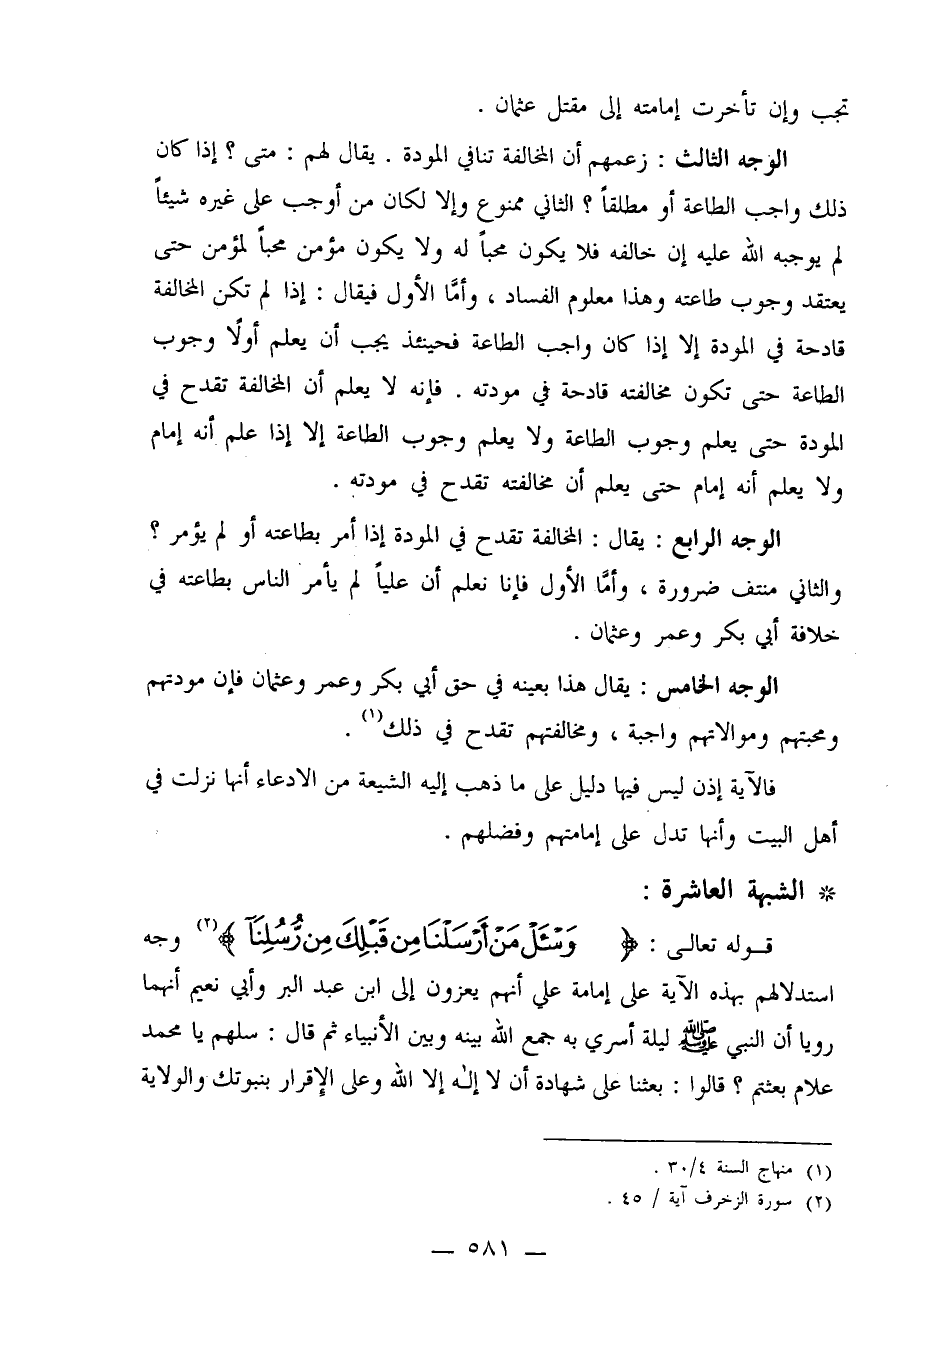 تجب وإن تأخرت إمامته إلى مقتل عثمان .
الوجه الثالث : زعمهم أن المخالفة تنافي المودة . يقال لهم : متى ؟ إذا كان
ذلك واجب الطاعة أو مطلقاً ؟ الثاني ممنوع وإلا لكان من أوجب على غيره شيئاً
لم يوجبه الله عليه إن خالفه فلا يكون محباً له ولا يكون مؤمن محباً لمؤمن حتى
يعتقد وجوب طاعته وهذا معلوم الفساد ، وأمَّا الأول فيقال : إذا لم تكن المخالفة
قادحة في المودة إلا إذا كان واجب الطاعة فحينئذ يجب أن يعلم أولًا وجوب
الطاعة حتى تكون مخالفته قادحة في مودته . فإنه لا يعلم أن المخالفة تقدح في
المودة حتى يعلم وجوب الطاعة ولا يعلم وجوب الطاعة إلا إذا علم أنه إمام
ولا يعلم أنه إمام حتى يعلم أن مخالفته تقدح في مودته .
الوجه الرابع : يقال : المخالفة تقدح في المودة إذا أمر بطاعته أو لم يؤمر ؟
والثاني منتف ضرورة ، وأمَّا الأول فإنا نعلم أن علياً لم يأمر الناس بطاعته في
خلافة أبي بكر وعمر وعثمان .
الوجه الخامس : يقال هذا بعينه في حق أبي بكر وعمر وعثمان فإن مودتهم
ومحبتهم وموالاتهم واجبة ، ومخالفتهم تقدح في ذلك(١) .
فالآية إذن ليس فيها دليل على ما ذهب إليه الشيعة من الادعاء أنها نزلت في
أهل البيت وأنها تدل على إمامتهم وفضلهم .
* الشبهة العاشرة :
قـوله تعالـى : ﴿ وَسْـَٔلْ مَنْ أَرْسَلْنَا مِن قَبْلِكَ مِن رُّسُلِنَآ ﴾(٢) وجه
استدلالهم بهذه الآية على إمامة علي أنهم يعزون إلى ابن عبد البر وأبي نعيم أنهما
رويا أن النبي ﷺ ليلة أسري به جمع الله بينه وبين الأنبياء ثم قال : سلهم يا محمد
علام بعثتم ؟ قالوا : بعثنا على شهادة أن لا إلٰه إلا الله وعلى الإقرار بنبوتك والولاية
(١) منهاج السنة ٣٠/٤ .
(٢) سورة الزخرف آية / ٤٥ .
— ٥٨١ —